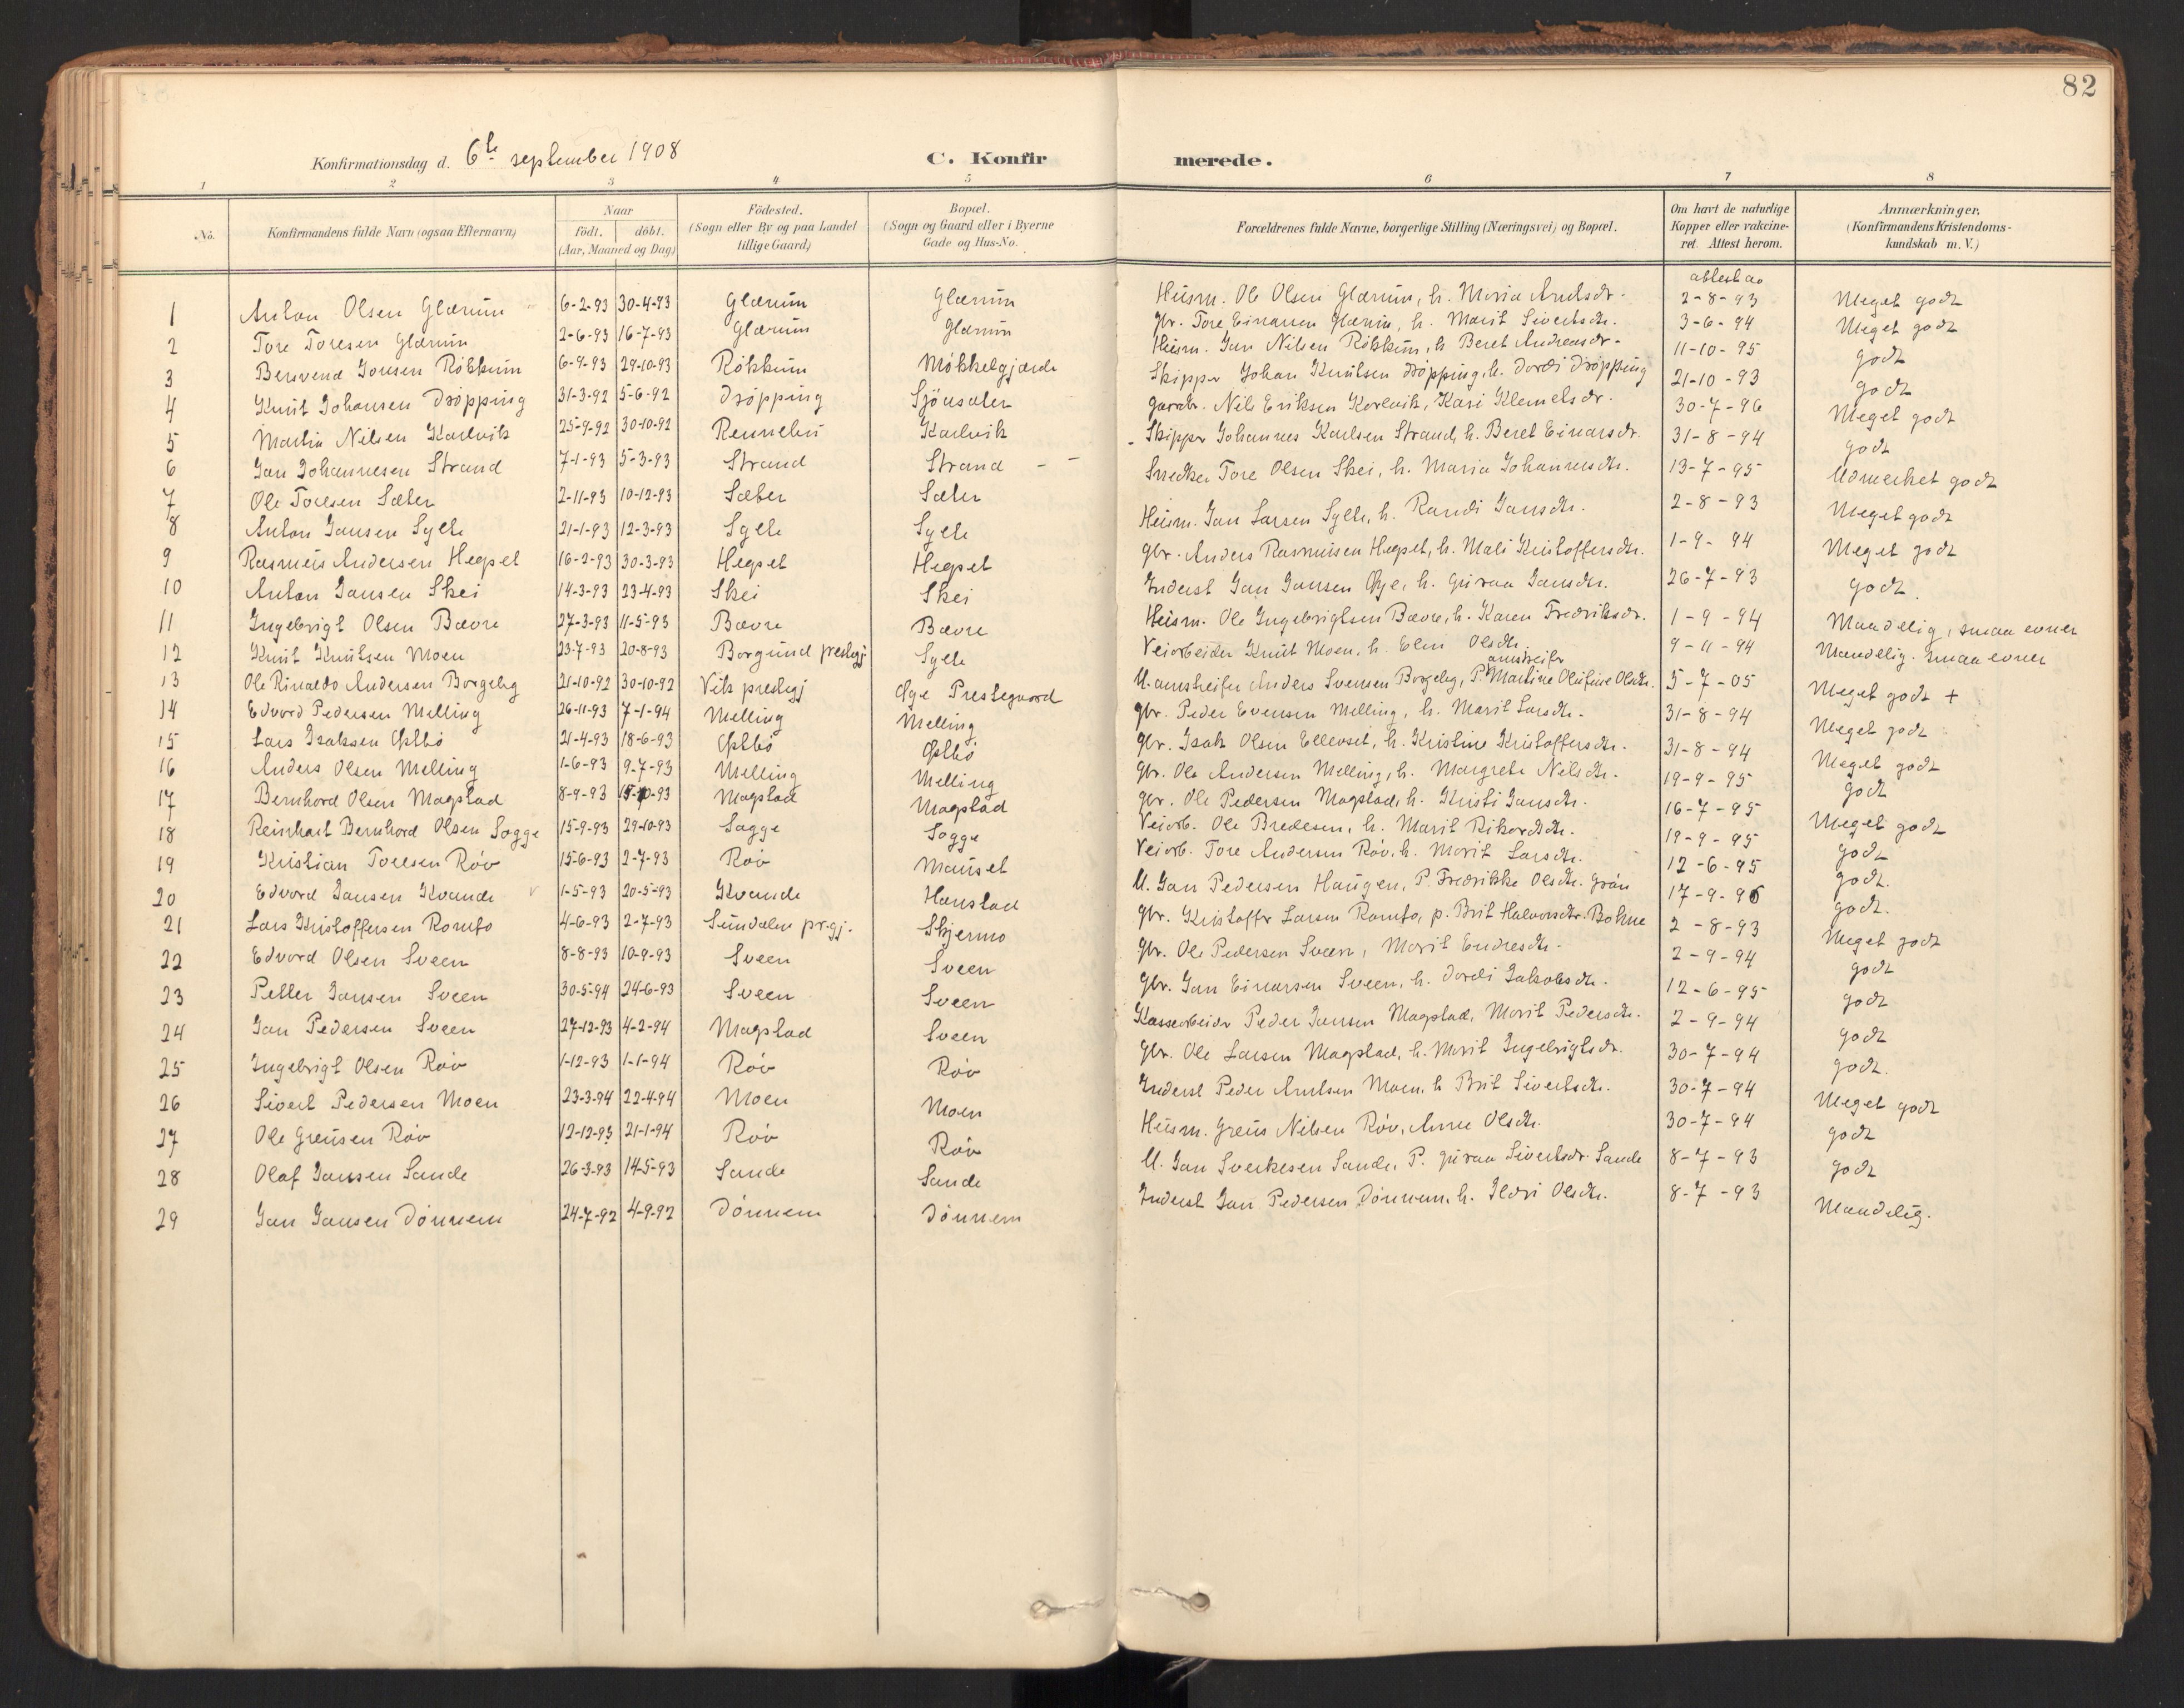 82
Konfirmationsdag d. 6te september 1908
C. Konfirmerede.
1 2 3 4 5 6 7 8
No. | Konfirmandens fulde Navn (ogsaa Efternavn) | Naar födt. döbt. (Aar, Maaned og Dag) | Födested. (Sogn eller By og paa Landet tillige Gaard) | Bopæl. (Sogn og Gaard eller i Byerne Gade og Hus-No. | Forældrenes fulde Navne, borgerlige Stilling (Næringsvei) og Bopæl. | Om havt de naturlige Kopper eller vakcineret. Attest herom. | Anmærkninger. (Konfirmandens Kristendomskundskab m. V.)
1 Anton Olsen Glærum 6-2-93 30-4-93 Glærum Glærum Husm. Ole Olsen Glærum, h. Maria Arntsdr. 2-8-93 Meget godt
2 Tore Toresen Glærum 2-6-93 16-7-93 Glærum Glærum Gbr. Tore Einarsen Glærum, h. Marit Sivertsdtr. 3-6-94 Meget godt
3 Bersvend Jonsen Rökkum 6-9-93 29-10-93 Rökkum Mökkelgjærde Husm. Jon Nilsen Rökkum, h. Beret Andreasdr. 11-10-95 godt
4 Knut Johansen Dröpping 31-3-92 5-6-92 Dröpping Sjöusæter Skipper Johan Knutsen Dröpping, h. Dordi Dröpping 21-10-93 godt
5 Martin Nilsen Karlvik 25-9-92 30-10-92 Rennebu Karlvik Gaardbr. Nils Eriksen Korlvik, Kari Klemetsdr. 30-7-96 Meget godt
6 Jon Johannesen Strand 7-1-93 5-3-93 Strand Strand Skipper Johannes Karlsen Strand, h. Beret Einarsdr. 31-8-94 godt
7 Ole Toresen Sæter 2-11-93 10-12-93 Sæter Sæter Snedker Tore Olsen Skei, h. Maria Johannesdtr. 13-7-95 Udmerket godt
8 Anton Jansen Sylte 21-1-93 12-3-93 Sylte Sylte Husm. Jan Larsen Sylte, h. Randi Jansdtr. 2-8-93 Meget godt
9 Rasmus Andersen Hegset 16-2-93 30-3-93 Hegset Hegset Gbr. Anders Rasmusen Hegset, h. Mali Kristoffersdtr. 1-9-94 Meget godt
10 Anton Jansen Skei 14-3-93 23-4-93 Skei Skei Inderst Jan Jansen Øye, h. Guraa Jansdtr. 26-7-93 godt.
11 Ingebrigt Olsen Bævre 27-3-93 11-5-93 Bævre Bævre Husm. Ole Ingebrigtsen Bævre, h. Karen Fredriksdr. 1-9-94 Maadelig, smaa evner
12 Knut Knutsen Moen 23-7-93 20-8-93 Borgund prestegj Sylte Veiarbeider Knut Moen, h. Elen Olsdtr. 9-11-94 Maadelig. smaa evner
13 Ole Rinaldo Andersen Borgehg 21-10-92 30-10-92 Vik prestegj Øye Prestegaard U. anstreifer Anders Svensen Borgehg, P. Martine Olufine Olsdtr. 5-7-05 Meget godt +
14 Edvard Pedersen Melling 26-11-93 7-1-94 Melling Melling Gbr. Peder Evensen Melling, h. Marit Larsdtr. 31-8-94 Meget godt
15 Lars Isaksen Östbö 21-4-93 18-6-93 Östbö Östbö Gbr. Isak Olsen Ellevset, h. Kristine Kristoffersdtr. 31-8-94 Meget godt
16 Anders Olsen Melling 1-6-93 9-7-93 Melling Melling Gbr. Ole Andersen Melling, h. Margrete Nilsdtr. 19-9-95 godt
17 Bernhard Olsen Magstad 8-9-93 15-10-93 Magstad Magstad Gbr. Ole Pedersen Magstad, h. Kristi Jansdtr. 16-7-95 Meget godt
18 Reinhart Bernhard Olsen Sogge 15-9-93 29-10-93 Sogge Sogge Veiarb. Ole Bredesen, h. Marit Rikardsdtr. 19-9-95 godt
19 Kristian Toresen Röv 15-6-93 2-7-93 Röv Mauset Veiarb. Tore Andersen Röv, h. Marit Larsdtr. 12-6-95 godt.
20 Edvard Jansen Kvande 1-5-93 20-5-93 Kvande Hanstad U. Jan Pedersen Haugen, P. Fredrikke Olsdtr. Grön 17-9-96 godt.
21 Lars Kristoffersen Romfo 4-6-93 2-7-93 Sundalen pr.gj. Skjermo Gbr. Kristoffer Larsen Romfo, p. Brit Halvorsdtr. Bohne 2-8-93 Meget godt
22 Edvard Olsen Sveen 8-8-93 10-9-93 Sveen Sveen Gbr. Ole Pedersen Sveen, Marit Endresdtr. 2-9-94 godt
23 Petter Jansen Sveen 30-5-94 24-6-93 Sveen Sveen Gbr. Jan Einarsen Sveen, h. Dordi Jakobsdtr. 12-6-95 godt
24 Jan Pedersen Sveen 27-12-93 4-2-94 Magstad Sveen Kassearbeider Peder Jansen Magstad, Marit Pedersdtr. 2-9-94 godt
25 Ingebrigt Olsen Röv 1-12-93 1-1-94 Röv Röv Gbr. Ole Larsen Magstad, h. Marit Ingebrigtsdr. 30-7-94 godt.
26 Sivert Pedersen Moen 23-3-94 22-4-94 Moen Moen Inderst Peder Arntsen Moen, h. Brit Sivertsdtr. 30-7-94 Meget godt
27 Ole Greusen Röv 12-12-93 21-1-94 Röv Röv Husm. Greus Nilsen Röv, Anne Olsdtr. 30-7-94 godt
28 Olaf Jansen Sande 26-3-93 14-5-93 Sande Sande U. Jan Sverkesen Sande, P. Guraa Sivertsdr. Sande 8-7-93 godt
29 Jan Jansen Dönnem 24-7-92 4-9-92 Dönnem Dönnem Inderst Jan Pedersen Dönnem, h. Ildri Olsdtr. 8-7-93 Maadelig.